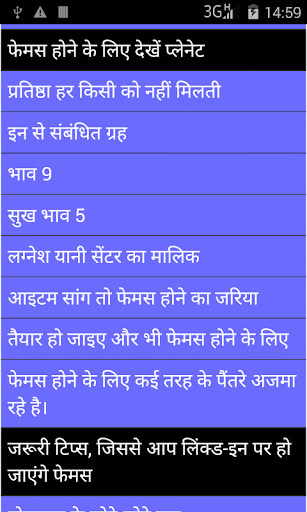 3G H 14:59
फेमस होने के लिए देखें प्लेनेट
प्रतिष्ठा हर किसी को नहीं मिलती
इन से संबंधित ग्रह
भाव 9
सुख भाव 5
लग्नेश यानी सेंटर का मालिक
आइटम सांग तो फेमस होने का जरिया
तैयार हो जाइए और भी फेमस होने के लिए
फेमस होने के लिए कई तरह के पैंतरे अजमा
रहे है।
जरूरी टिप्स, जिससे आप लिंक्ड-इन पर हो
जाएंगे फेमस